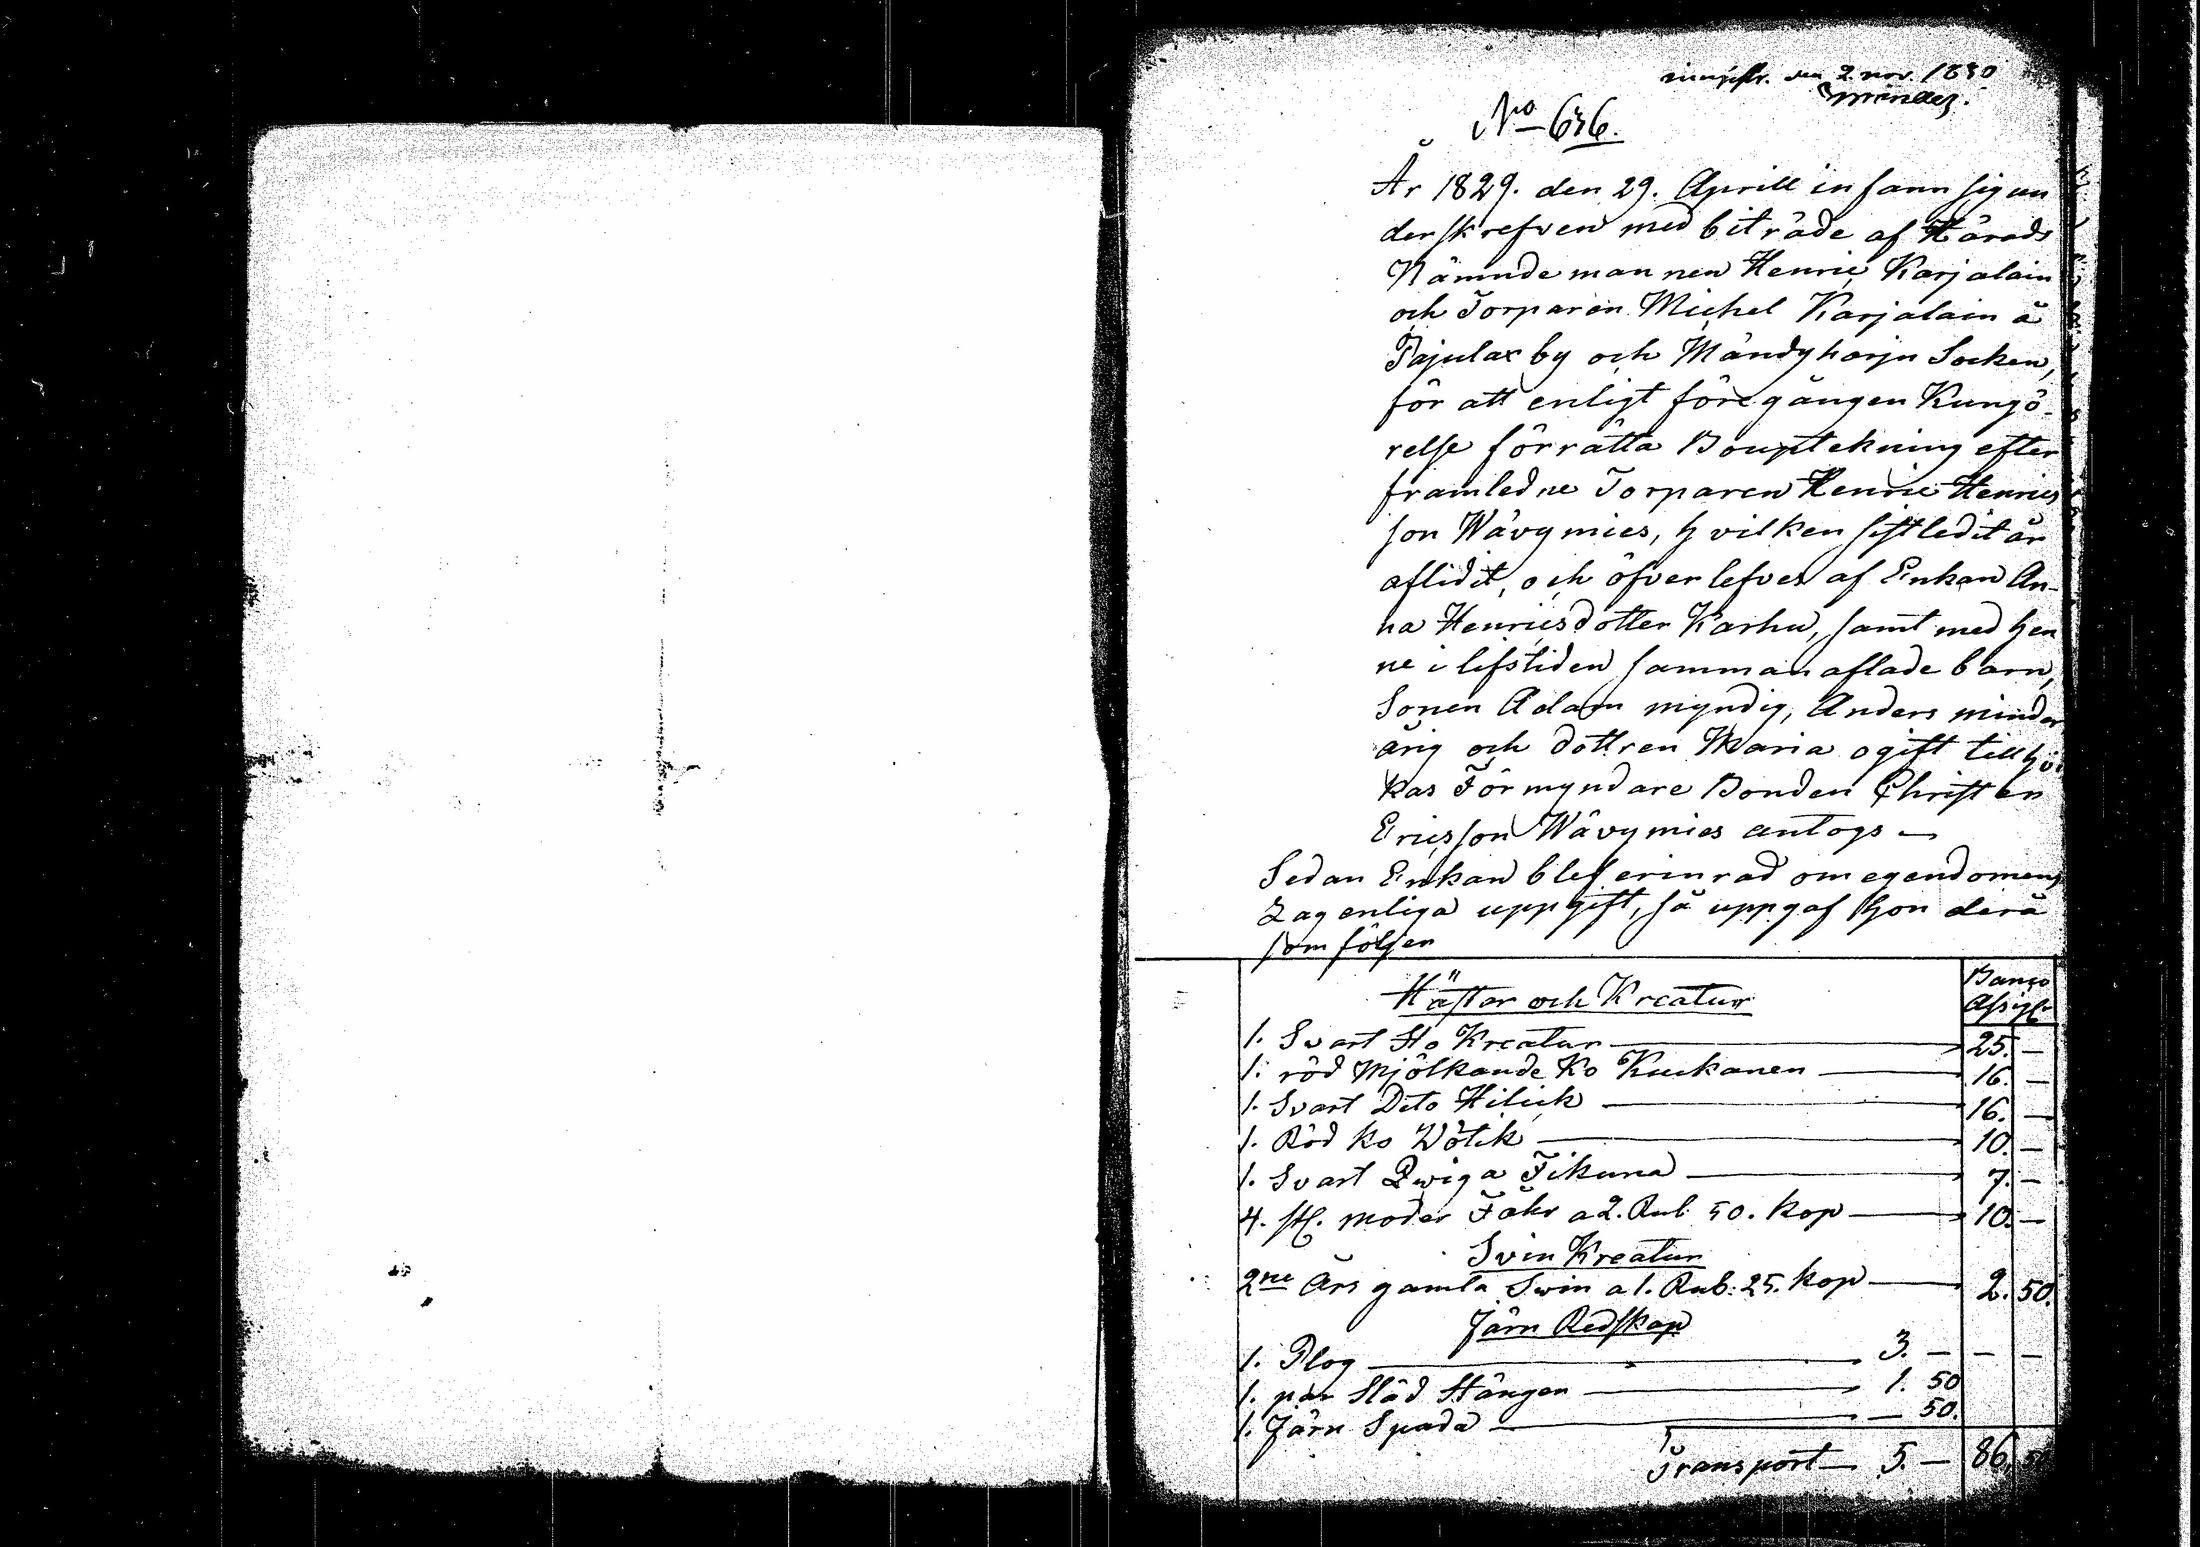 den 2. nov. 1830
No 636.
År 1829. den 29. Aprill infann sig un
derskrefven med biträde af Härads
Nämndemannen Henric Karjalain
och Torparen Michel Karjalain å
Pajulax by och Mändyharju Socken,
för att enligt föregången Kungö-
relse förrätta Bouptekning efter
framledne Torparen Henric Henrics
son Wävymies, hvilken sistledit år
aflidit, och öfverlefves af Enkan An-
na Henricsdotter Karhu, samt med hen
ne i lifstiden sammanaflade barn,
Sonen Adam myndig, Anders minder
årig och dottren Maria ogift till hvil
kas Förmyndare Bonden Christer
Ericsson Wävymies antogs —
Sedan Enkan blef erinrad om egendomens
Lagenliga uppgift, så uppgaf hon derå
som följer
Hästar och Kreatur Banco Assigt.
1. Svart Sto Kreatur — 25. —
1. röd Mjölkande Ko Kuckanen — 16. —
1. Svart Dito Hilick — 16. —
1. Röd Ko Wötik — 10. —
1. Svart Qwiga Tikuna — 7. —
4. st. moder Fåhr a 2. Rub 50. Kop — 10. —
Svin Kreatur
2ne Års gamla Swin a 1. Rub. 25. Kop — 2. 50.
Järn Redskap
1. Plog — 3. — — —
1. par Släd Stänger — 1. 50
1. Järn Spada — — 50.
Transport — 5. — 86. 50